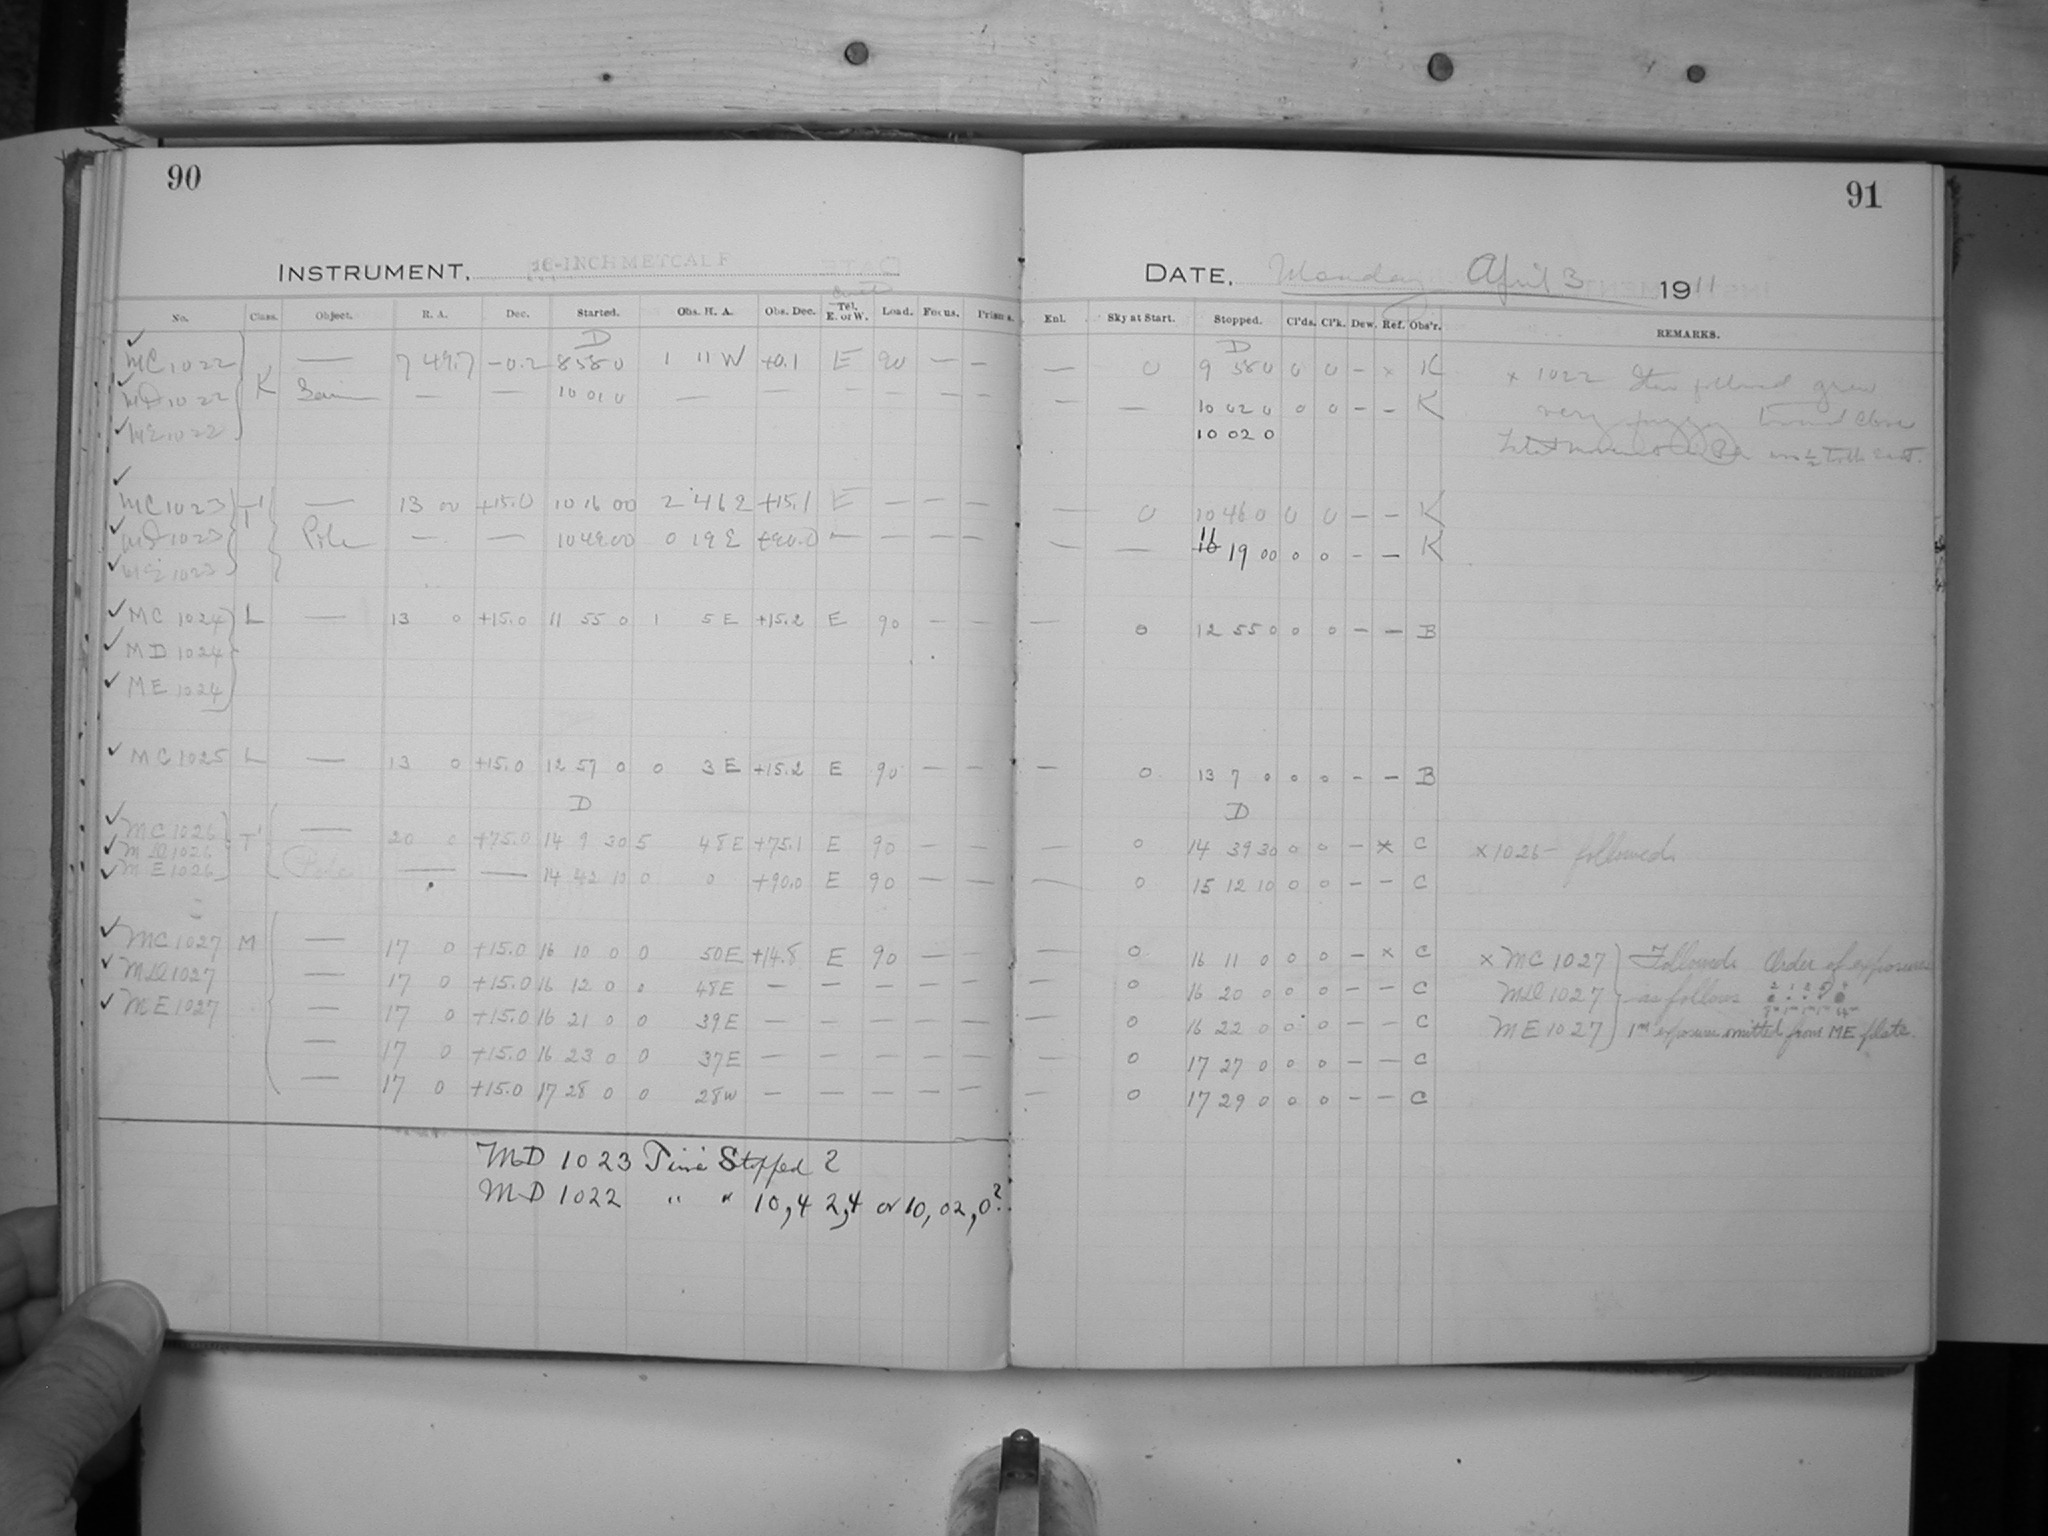 90
INSTRUMENT, 16-INCH METCALF
No. Class. Object. R. A. Dec. Started. Obs. H. A. Obs. Dec. Tel. E. or W. Load. Focus. Prisms.
D
MC 1022 — 7 49.7 -0.2 8 58 0 1 11 W +0.1 E 90 — —
MD 1022 K — — 10 01 0 — — — — — —
ME 1022
MC 1023 T' — 13 00 +15.0 10 16 00 2 46 E +15.1 E — — —
MD 1023 Pole — — 10 49 00 0 19 E +90.0 — — — —
ME 1023
MC 1024 L — 13 0 +15.0 11 55 0 1 5 E +15.2 E 90 — —
MD 1024
ME 1024
MC 1025 L — 13 0 +15.0 12 57 0 0 3 E +15.2 E 90 — —
D
MC 1026 T' — 20 0 +75.0 14 9 30 5 48 E +75.1 E 90 — —
MD 1026
ME 1026 Pole — — 14 42 10 0 0 +90.0 E 90 — —
MC 1027 M — 17 0 +15.0 16 10 0 0 50 E +14.8 E 90 — —
MD 1027 — 17 0 +15.0 16 12 0 0 48 E — — — — —
ME 1027 — 17 0 +15.0 16 21 0 0 39 E — — — — —
— 17 0 +15.0 16 23 0 0 37 E — — — — —
— 17 0 +15.0 17 28 0 0 28 W — — — — —
MD 1023 Time Stopped ?
MD 1022 " " 10,42,4 or 10,02,0?
91
DATE, Monday April 3 1911
Enl. Sky at Start. Stopped. Cl'ds. Cl'k. Dew. Ref. Obs'r. REMARKS.
D
— 0 9 58 0 0 0 — x K x 1022 Star followed grew
— — 10 02 0 0 0 — — K very
10 02 0
— 0 10 46 0 0 0 — — K
— — 10 11 19 00 0 0 — — K
— 0 12 55 0 0 0 — — B
— 0 13 7 0 0 0 — — B
D
— 0 14 39 30 0 0 — x C x 1026 — followed
— 0 15 12 10 0 0 — — C
— 0 16 11 0 0 0 — x C x MC 1027 Followed Order of exposures
— 0 16 20 0 0 0 — — C MD 1027 as follows
— 0 16 22 0 0 0 — — C ME 1027 1m exposure omitted from ME plate.
— 0 17 27 0 0 0 — — C
— 0 17 29 0 0 0 — — C